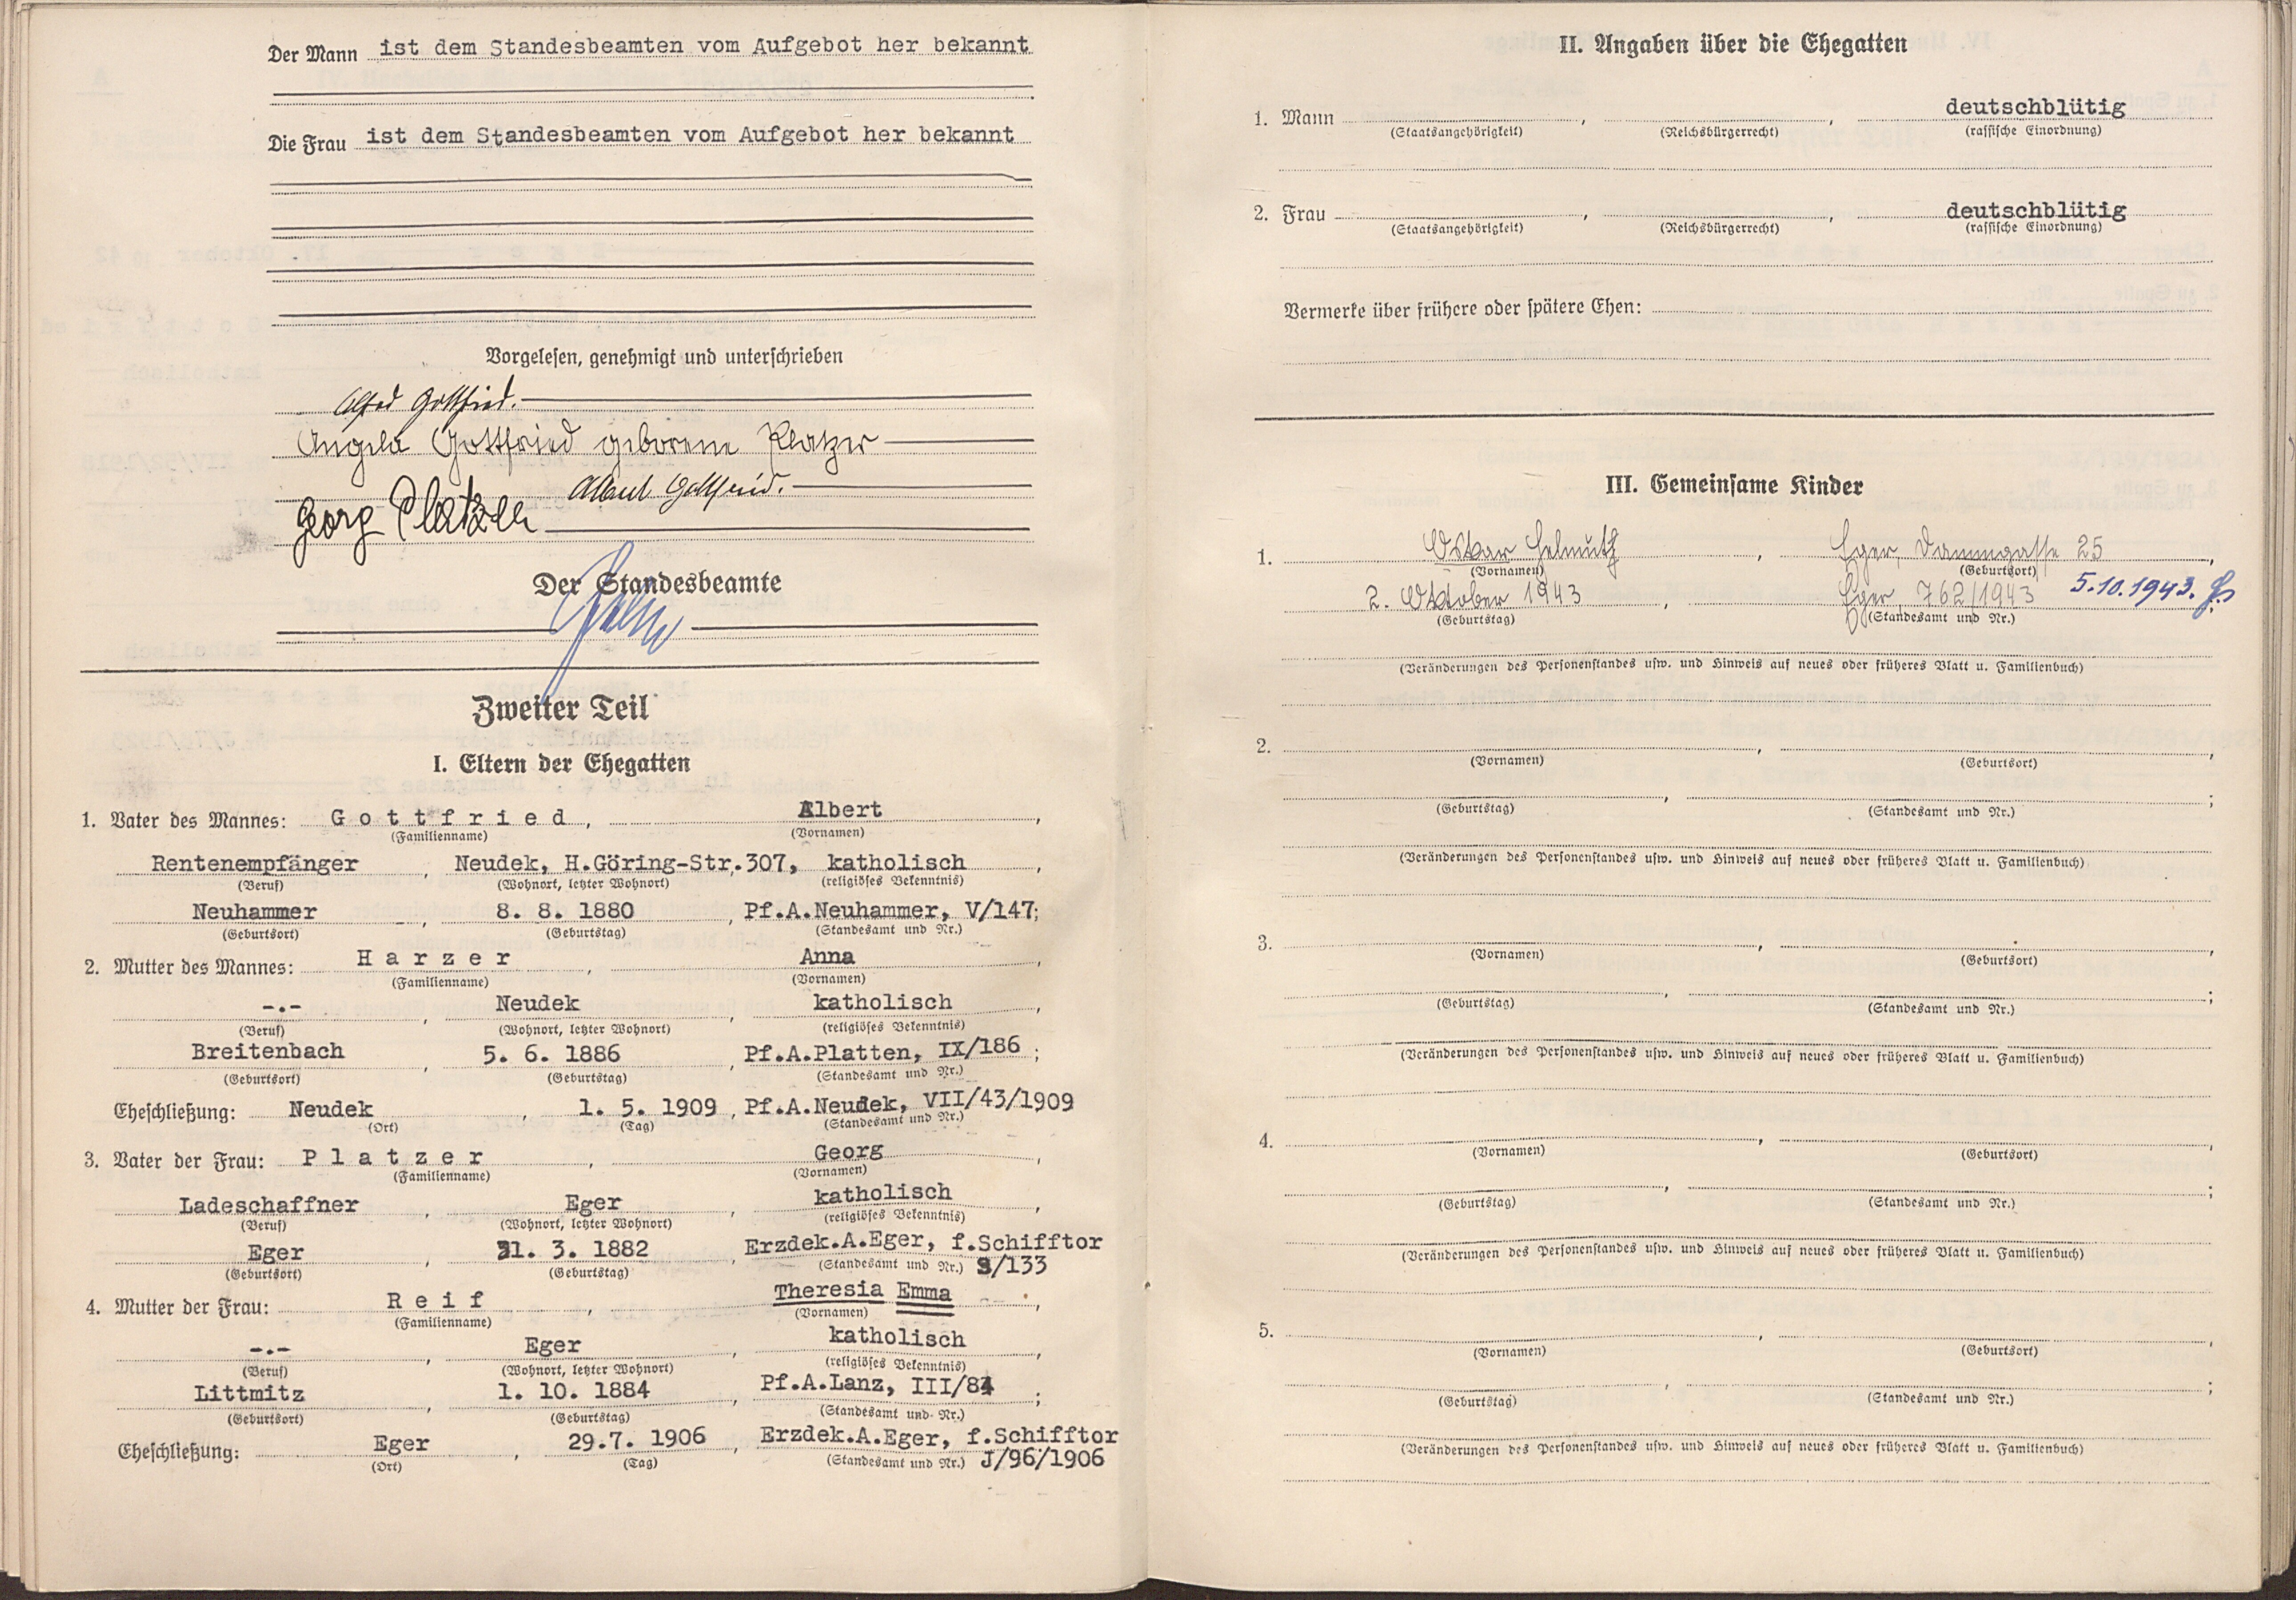 Der Mann ist dem Standesbeamten vom Aufgebot her bekannt
Die Frau ist dem Standesbeamten vom Aufgebot her bekannt
Vorgelesen, genehmigt und unterschrieben
Alfred Gottfried.
Angela Gottfried geborene Platzer
Albert Gottfried.
Georg Platzer
Der Standesbeamte
Zweiter Teil
I. Eltern der Ehegatten
1. Vater des Mannes: Gottfried, Albert,
(Familienname) (Vornamen)
Rentenempfänger, Neudek, H.Göring-Str.307, katholisch,
(Beruf) (Wohnort, letzter Wohnort) (religiöses Bekenntnis)
Neuhammer, 8. 8. 1880, Pf.A.Neuhammer, V/147;
(Geburtsort) (Geburtstag) (Standesamt und Nr.)
2. Mutter des Mannes: Harzer, Anna,
(Familienname) (Vornamen)
-.-, Neudek, katholisch,
(Beruf) (Wohnort, letzter Wohnort) (religiöses Bekenntnis)
Breitenbach, 5. 6. 1886, Pf.A.Platten, IX/186;
(Geburtsort) (Geburtstag) (Standesamt und Nr.)
Eheschließung: Neudek, 1. 5. 1909, Pf.A.Neudek, VII/43/1909
(Ort) (Tag) (Standesamt und Nr.)
3. Vater der Frau: Platzer, Georg,
(Familienname) (Vornamen)
Ladeschaffner, Eger, katholisch,
(Beruf) (Wohnort, letzter Wohnort) (religiöses Bekenntnis)
Eger, 31. 3. 1882, Erzdek.A.Eger, f.Schifftor
(Geburtsort) (Geburtstag) (Standesamt und Nr.) /133
4. Mutter der Frau: Reif, Theresia Emma,
(Familienname) (Vornamen)
-.-, Eger, katholisch,
(Beruf) (Wohnort, letzter Wohnort) (religiöses Bekenntnis)
Littmitz, 1. 10. 1884, Pf.A.Lanz, III/84;
(Geburtsort) (Geburtstag) (Standesamt und Nr.)
Eheschließung: Eger, 29.7. 1906, Erzdek.A.Eger, f.Schifftor
(Ort) (Tag) (Standesamt und Nr.) J/96/1906
II. Angaben über die Ehegatten
1. Mann , , deutschblütig
(Staatsangehörigkeit) (Reichsbürgerrecht) (rassische Einordnung)
2. Frau , , deutschblütig
(Staatsangehörigkeit) (Reichsbürgerrecht) (rassische Einordnung)
Vermerke über frühere oder spätere Ehen:
III. Gemeinsame Kinder
1. Oskar Helmuth, Eger, Dammgasse 25,
(Vornamen) (Geburtsort)
2. Oktober 1943, Eger, 762/1943 5.10.1943.
(Geburtstag) (Standesamt und Nr.)
(Veränderungen des Personenstandes usw. und Hinweis auf neues oder früheres Blatt u. Familienbuch)
2. , ,
(Vornamen) (Geburtsort)
, ;
(Geburtstag) (Standesamt und Nr.)
(Veränderungen des Personenstandes usw. und Hinweis auf neues oder früheres Blatt u. Familienbuch)
3. , ,
(Vornamen) (Geburtsort)
, ;
(Geburtstag) (Standesamt und Nr.)
(Veränderungen des Personenstandes usw. und Hinweis auf neues oder früheres Blatt u. Familienbuch)
4. , ,
(Vornamen) (Geburtsort)
, ;
(Geburtstag) (Standesamt und Nr.)
(Veränderungen des Personenstandes usw. und Hinweis auf neues oder früheres Blatt u. Familienbuch)
5. , ,
(Vornamen) (Geburtsort)
, ;
(Geburtstag) (Standesamt und Nr.)
(Veränderungen des Personenstandes usw. und Hinweis auf neues oder früheres Blatt u. Familienbuch)